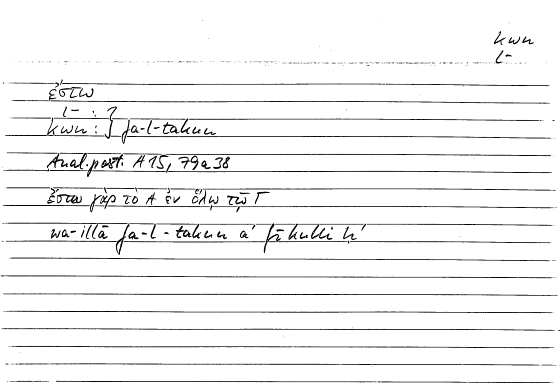 kwn
l-
ἔστω
l- : }
kwn : } fa-l-takun
Anal. post. A 15, 79a38
ἔστω γὰρ τὸ Α ἐν ὅλῳ τῷ Γ
wa-illā fa-l-takun a' fī kulli ḥ'